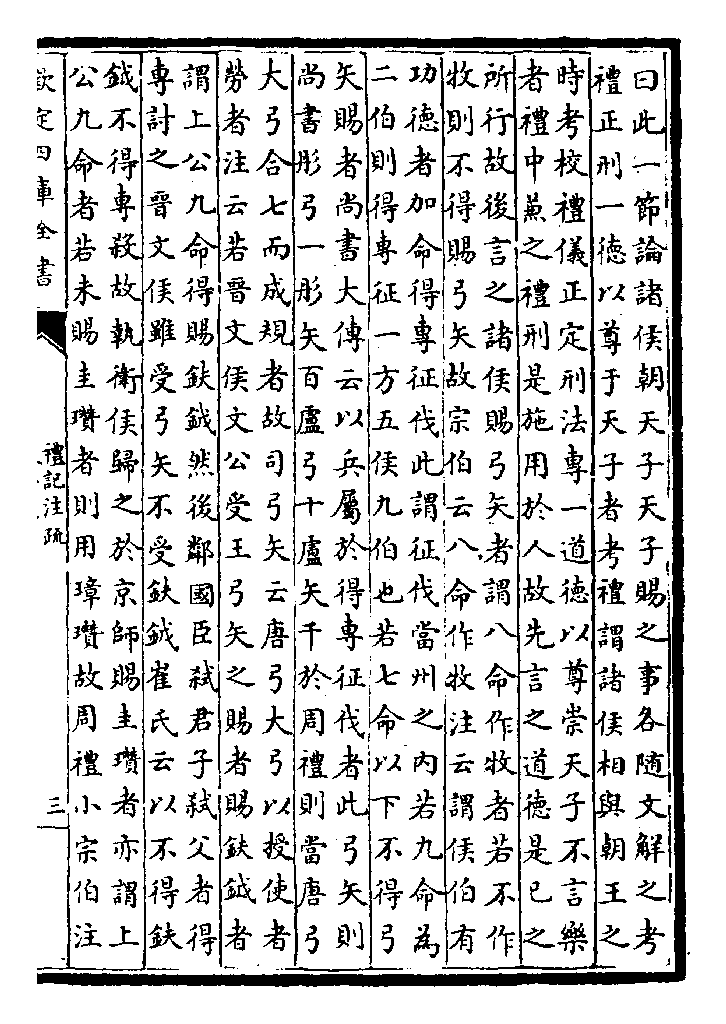 曰此一節論諸侯朝天子天子賜之事各隨文解之考
禮正刑一德以尊于天子者考禮謂諸侯相與朝王之
時考校禮儀正定刑法專一道德以尊崇天子不言樂
者禮中兼之禮刑是施用於人故先言之道德是已之
所行故後言之諸侯賜弓矢者謂八命作牧者若不作
牧則不得賜弓矢故宗伯云八命作牧注云謂侯伯有
功德者加命得專征伐此謂征伐當州之內若九命為
二伯則得專征一方五侯九伯也若七命以下不得弓
矢賜者尚書大傳云以兵屬於得專征伐者此弓矢則
尚書彤弓一彤矢百盧弓十盧矢千於周禮則當唐弓
大弓合七而成規者故司弓矢云唐弓大弓以授使者
勞者注云若晉文侯文公受王弓矢之賜者賜鈇鉞者
謂上公九命得賜鈇鉞然後鄰國臣弒君子弒父者得
專討之晉文侯雖受弓矢不受鈇鉞崔氏云以不得鈇
鉞不得專殺故執衛侯歸之於京師賜圭瓚者亦謂上
公九命者若未賜圭瓚者則用璋瓚故周禮小宗伯注
欽定四庫全書
禮記注疏
三